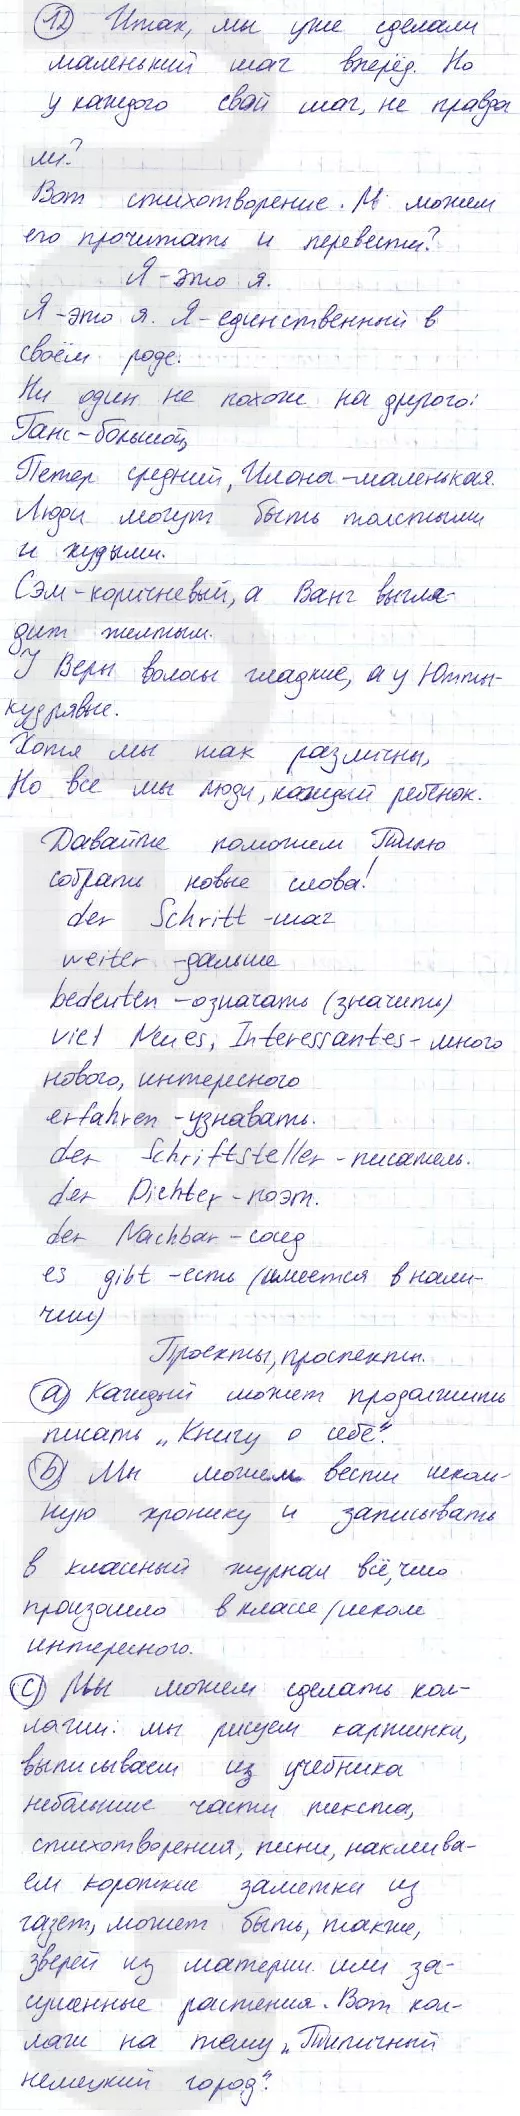 12 Итак, мы уже сделали
маленький шаг вперёд. Но
у каждого свой шаг, не правда
ли?
Вот стихотворение. М можем
его прочитать и перевести?
Я - это я.
Я - это я. Я - единственный в
своём роде.
Ни один не похож на другого:
Ганс - большой,
Петер средний, Илона - маленькая.
Люди могут быть толстыми
и худыми.
Сэм - коричневый, а Ванг выгля-
дит желтым.
У Веры волосы гладкие, а у Ютты -
кудрявые.
Хотя мы так различны,
Но все мы люди, каждый ребенок.
Давайте поможем Тилю
собрать новые слова!
der Schritt - шаг
weiter - дальше
bedeuten - означать (значить)
viel Neues, Interessantes - много
нового, интересного
erfahren - узнавать.
der Schriftsteller - писатель.
der Dichter - поэт.
der Nachbar - сосед
es gibt - есть (имеется в нали-
чии)
Проекты, проспекты.
a) Каждый может продолжить
писать „Книгу о себе".
b) Мы можем вести школь-
ную хронику и записывать
в классный журнал всё, что
произошло в классе / школе
интересного.
c) Мы можем сделать кол-
лажи: мы рисуем картинки,
выписываем из учебника
небольшие части текста,
стихотворения, песни, наклеива-
ем короткие заметки из
газет, может быть, также,
зверей из материи или за-
сушенные растения. Вот кол-
лаж на тему „Типичный
немецкий город".